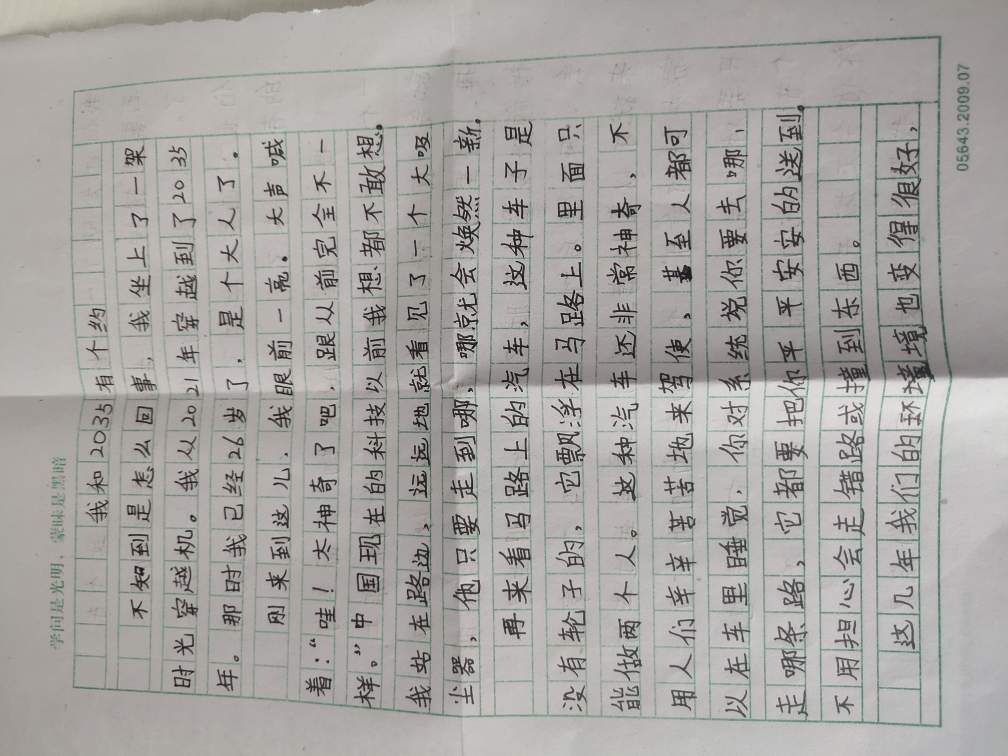 学问是光明，蒙昧是黑暗
我和2035有个约
不知到是怎么回事，我坐上了一架
时光穿越机。我从2021年穿越到了2035
年。那时我已经26岁了，是个大人了。
刚来到这儿，我眼前一亮。大声喊
着：“哇！太神奇了吧，跟从前完全不一
样。”中国现在的科技以前我想都不敢想。
我站在路边，远远地就看见了一个大吸
尘器，他只要走到哪，哪就会焕然一新。
再来看马路上的汽车，这种车子是
没有轮子的，它飘浮在马路上。里面只
能做两个人。这种汽车还非常神奇，不
用人们辛辛苦苦地来驾使，甚至人都可
以在车里睡觉，你对系统说你要去哪，
走哪条路，它都要把你平平安安的送到。
不用担心会走错路或撞到东西。
这几年我们的环境也变得很好，
05643.2009.07